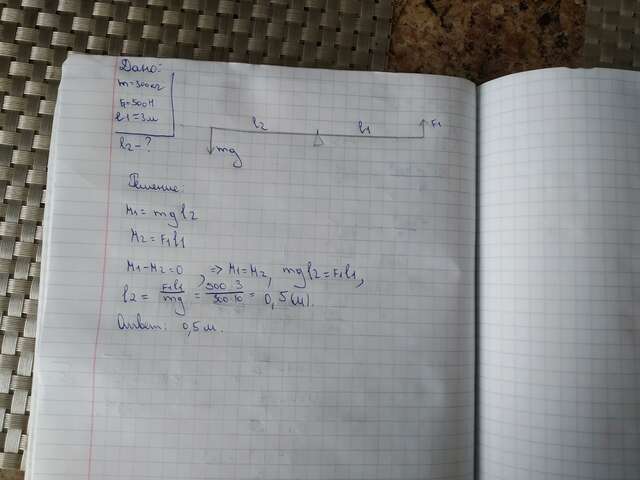 Дано:
m=300кг
F1=500Н
l1=3м
l2-?
l2 l1 F1
mg
Решение:
M1=mgl2
M2=F1l1
M1-M2=0, => M1=M2, mgl2=F1l1,
l2= F1l1/mg = 500·3/300·10 = 0,5(м).
Ответ: 0,5м.